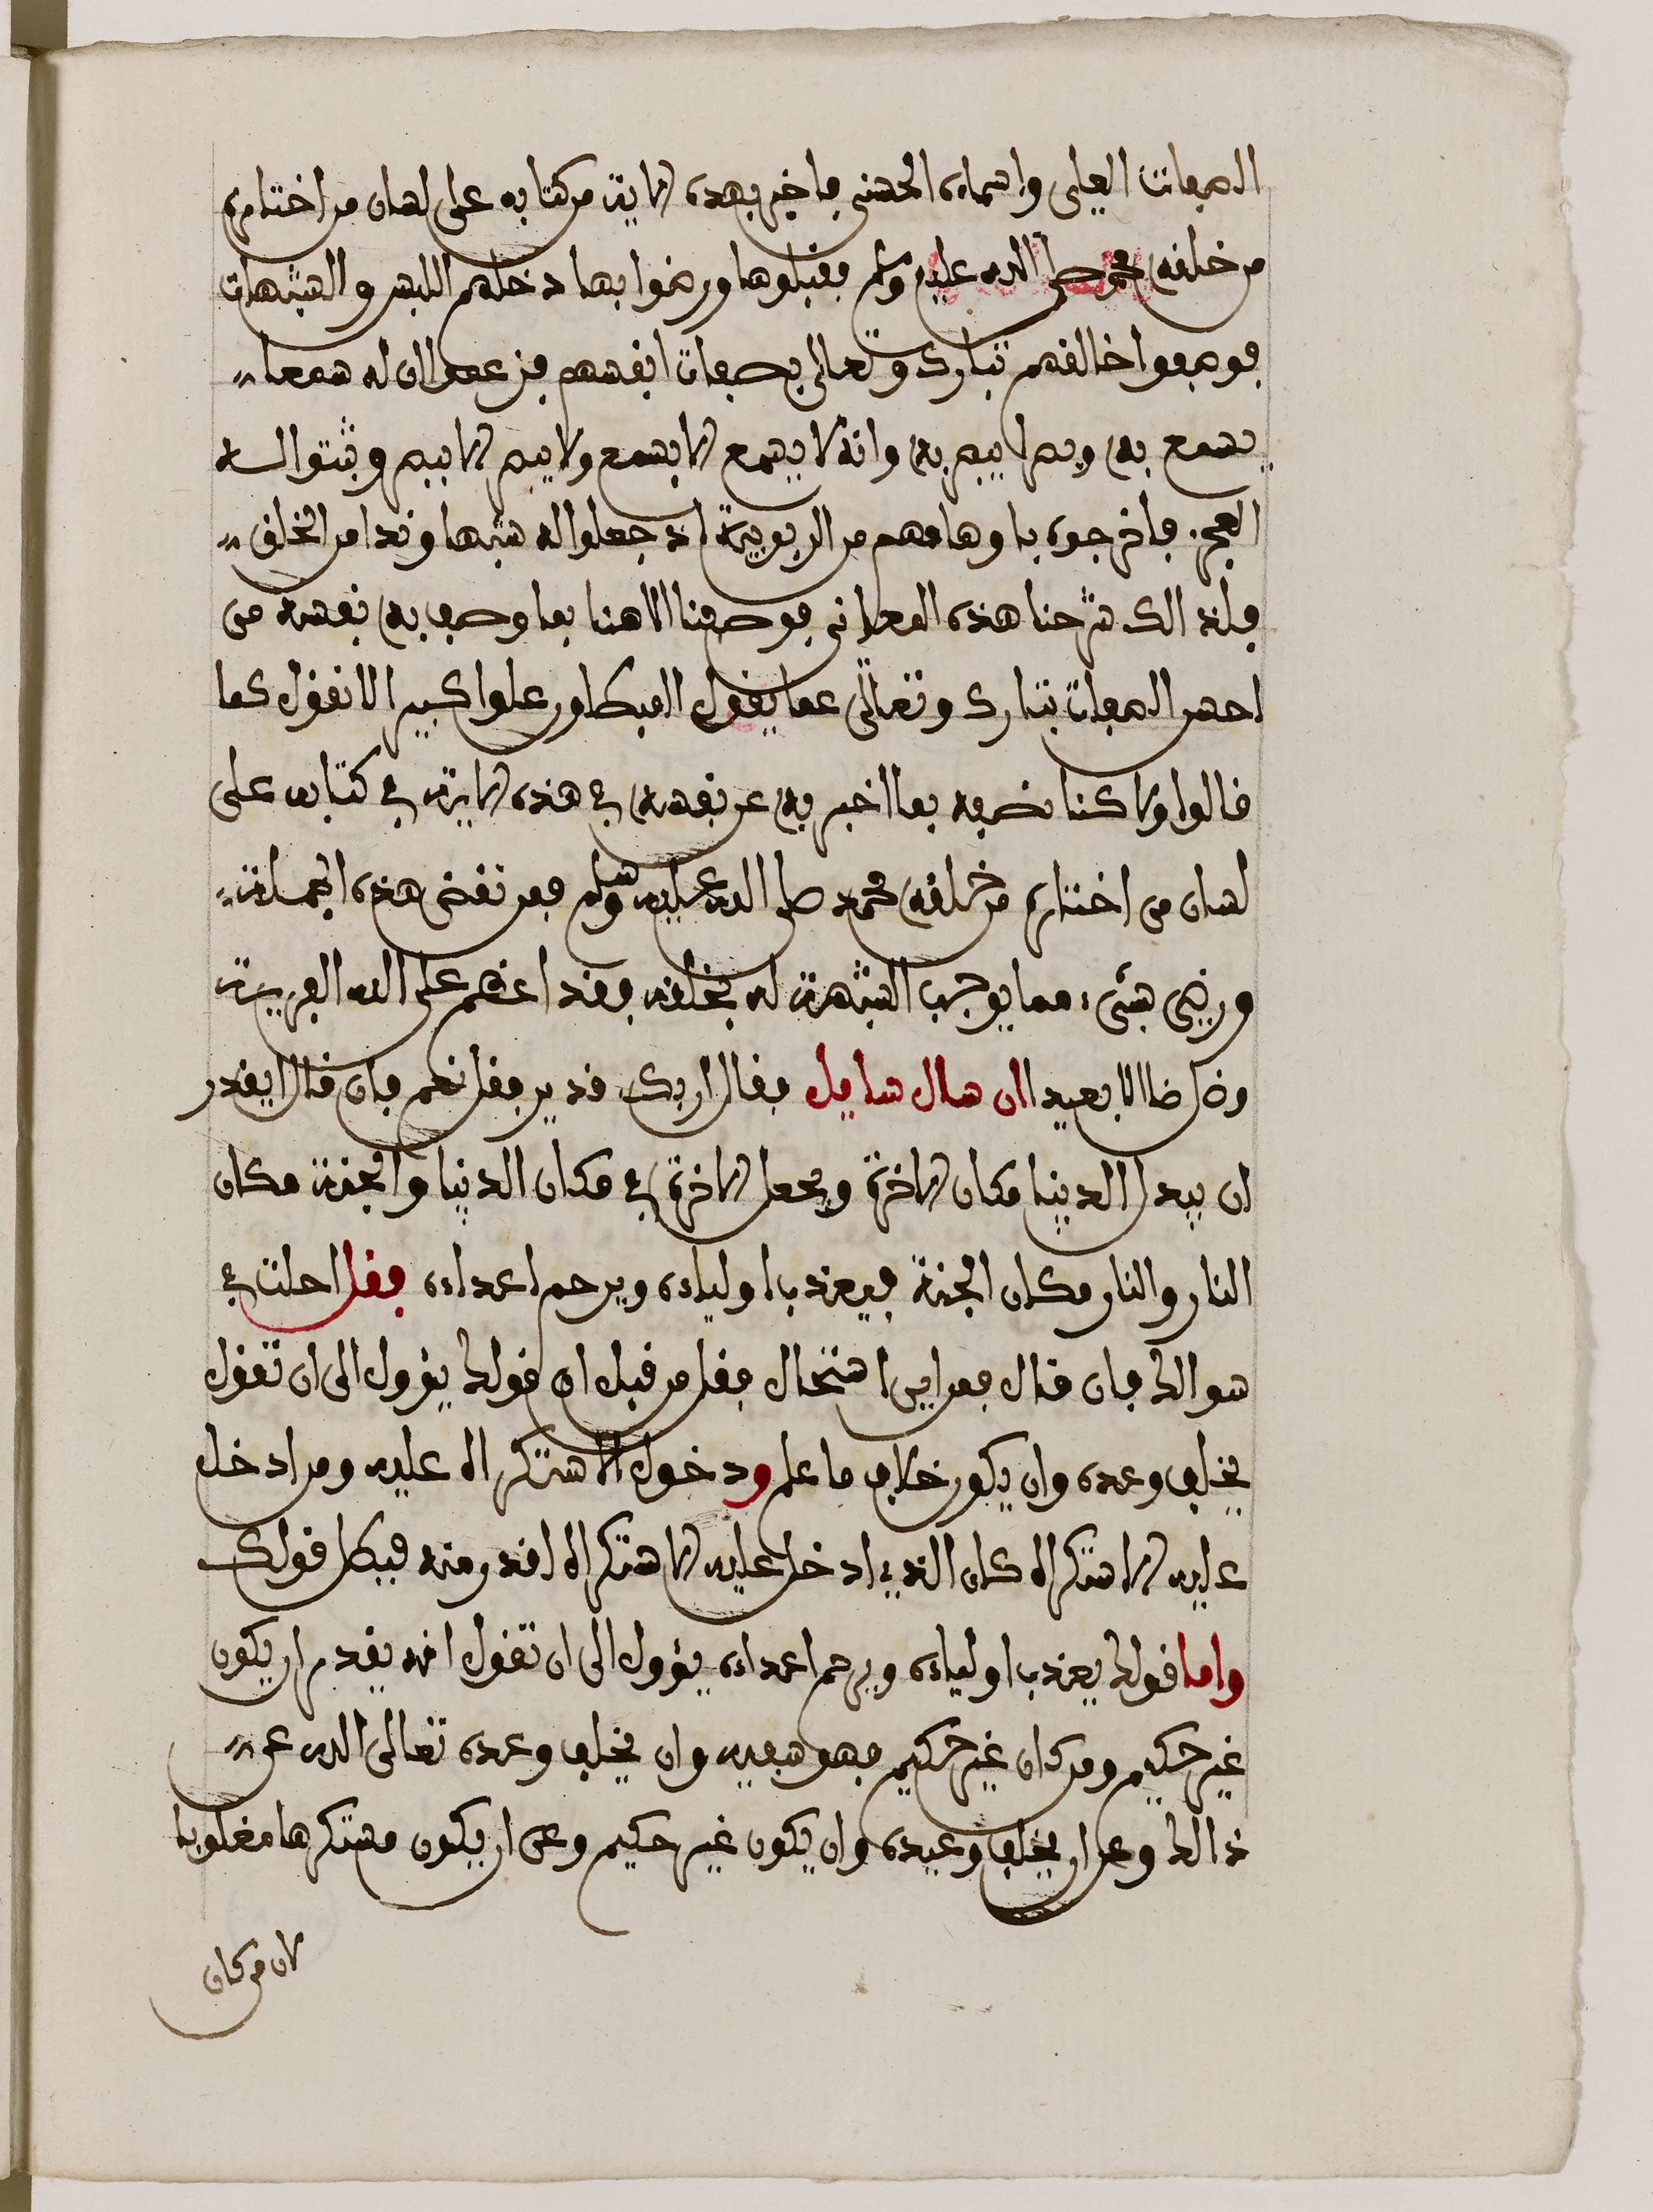 الصفات العلى واسماءه الحسنى فاخبر بهذه الاية من كتابه على لسان من اختاره
من خلقه محمد صلى الله عليه وسلم فقبلوها ورضوا بها دخلهم اللبس والشبهات
فوصفوا خالقهم تبارك وتعالى بصفات انفسهم فزعموا ان له سمعا
يسمع به وبصرا يبصر به وانه لا يسمع الا بسمع ولا يبصر الا ببصر وثبتوا له
العجز فاخرجوه باوهامهم من الربوبية اذ جعلوا له شبها وندا من الخلق
فلذالك شرحنا هذه المعاني فوصفنا الاهنا بما وصف به نفسه من
احسن الصفات تبارك وتعالى عما يقول المبطلون علوا كبيرا لا نقول كما
قالوا ولاكنا نصفه بما اخبر به عن نفسه في هذه الاية في كتابه على
لسان من اختاره من خلقه محمد صلى الله عليه وسلم فمن نقض هذه الجملة
ورضي بشيء مما يوجب الشبهة له بخلقه فقد اعظم على الله الفرية
وضل ضلالا بعيدا ان سال سايل فقال اربك قدير فقل نعم فان قال ايقدر
ان يبدل الدنيا مكان الاخرة ويجعل الاخرة في مكان الدنيا والجنة مكان
النار والنار مكان الجنة فيعذب اولياءه ويرحم اعداءه فقل احلت في
سوالك فان قال فمن اين استحال فقل من قبل ان قولك يؤول الى ان تقول
يخلف وعده وان يكون خلاف ما علم ودخول الاستكراه عليه ومن ادخل
عليه الاستكراه كان الذي ادخل عليه الاستكراه اقدر منه فبطل قولك
واما قولك يعذب اولياءه ويرحم اعداءه يؤول الى ان تقول انه يقدر ان يكون
غير حكيم ومن كان غير حكيم فهو سفيه وان يخلف وعده تعالى الله عن
ذالك وعن ان يخلف وعيده وان يكون غير حكيم وعن ان يكون مستكرها مغلوبا
لان من كان